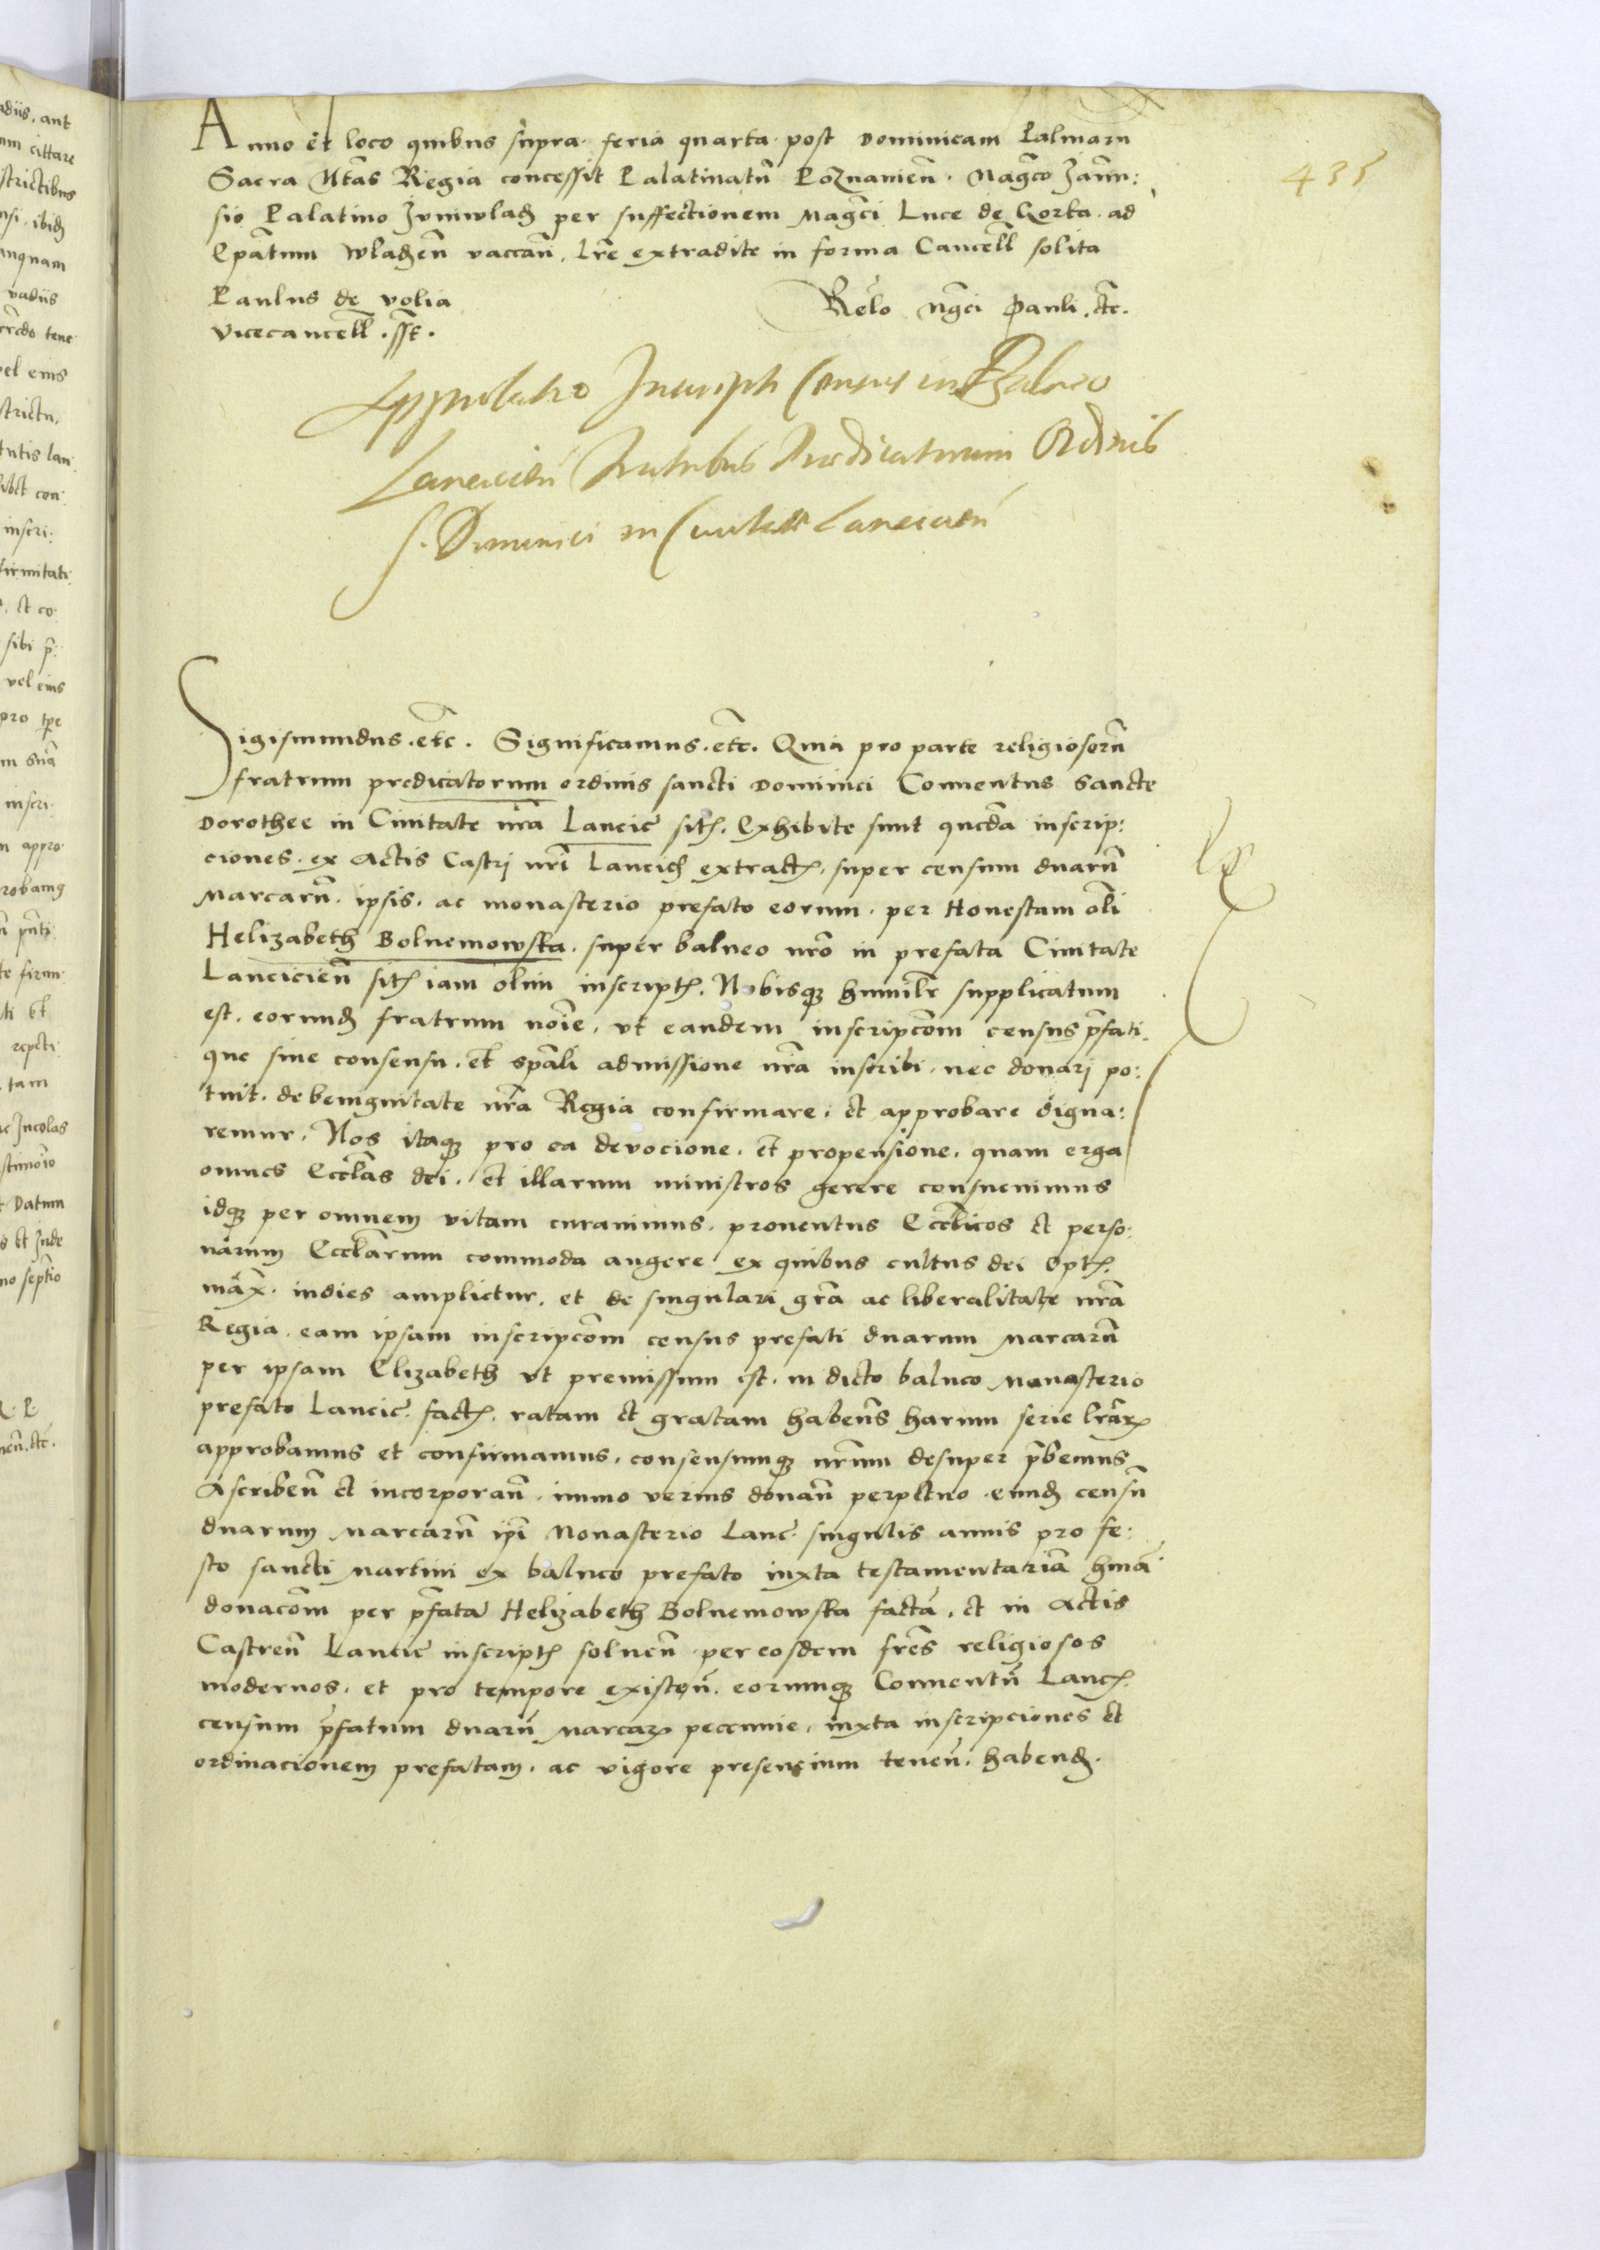 435
Anno et loco quibus supra feria quarta post Dominicam Palmaru
Sacra Mtas Regia concessit Palatinatu Poznanien. Magco Janu:
sio Palatino Juniwladz per suffectionem Magci Luce de Gorka ad
Epatum Wladzen vaccan. Lre extradite in forma Cancell solita
Paulus de volia
vicecancell. sst.
Relo Mgci Pauli. etc.
Approbatio Inscripti Census in Balneo
Lancicien Fratribus Praedicatorum Ordinis
S. Dominici in Civitate Lancicien
Sigismundus. etc. Significamus. etc. Quia pro parte religiosoru
fratrum predicatorum ordinis sancti Dominici Conuentus Sancte
Dorothee in Ciuitate nra Lancic sit. Exhibite sunt queda inscrip:
ciones. ex Actis Castri nri Lancicz extract. super censum duaru
Marcaru. ipsis. ac monasterio prefato eorum. per Honestam oli
Helizabeth Bolnemowska. super balneo nro in prefata Ciuitate
Lancicien sit iam olim inscript. Nobisq humilr supplicatum
est. eorund fratrum noie. vt eandem inscripcom census pfati.
que sine consensu. et spali admissione nra inscribi. nec donarj po:
tuit. de benignitate nra Regia confirmare. et approbare digna:
remur. Nos itaq pro ea devocione. et propensione. quam erga
omnes Ecclas dei. et illarum ministros gerere consueuimus
idq per omnem vitam curauimus. prouentus Ecclicos et perso:
narum Ecclarum commoda augere ex quibus cultus dei Opt.
max. indies amplietur. et de singulari gra ac liberalitate nra
Regia. eam ipsam inscripcom census prefati duarum Marcaru
per ipsam Elizabeth vt premissum est. in dicto balneo Monasterio
prefato Lancic. fact. ratam et gratam habens harum serie lrar
approbamus et confirmamus. consensumq nrum desuper pbemus
Ascriben et incorporan. immo verius donan perpetuo. eund censu
duarum Marcaru ipi Monasterio Lanc. singulis annis pro fe:
sto sancti Martini ex balneo prefato iuxta testamentaria hma
donacom per pfata Helizabeth Bolnemowska facta. et in Actis
Castren Lancic inscript soluen per eosdem fres religiosos
modernos. et pro tempore existen. eorumq Conuentu Lanc.
censum pfatum duaru Marcar peccunie. iuxta inscripciones et
ordinacionem prefatam. ac vigore presensium tenen. habend.